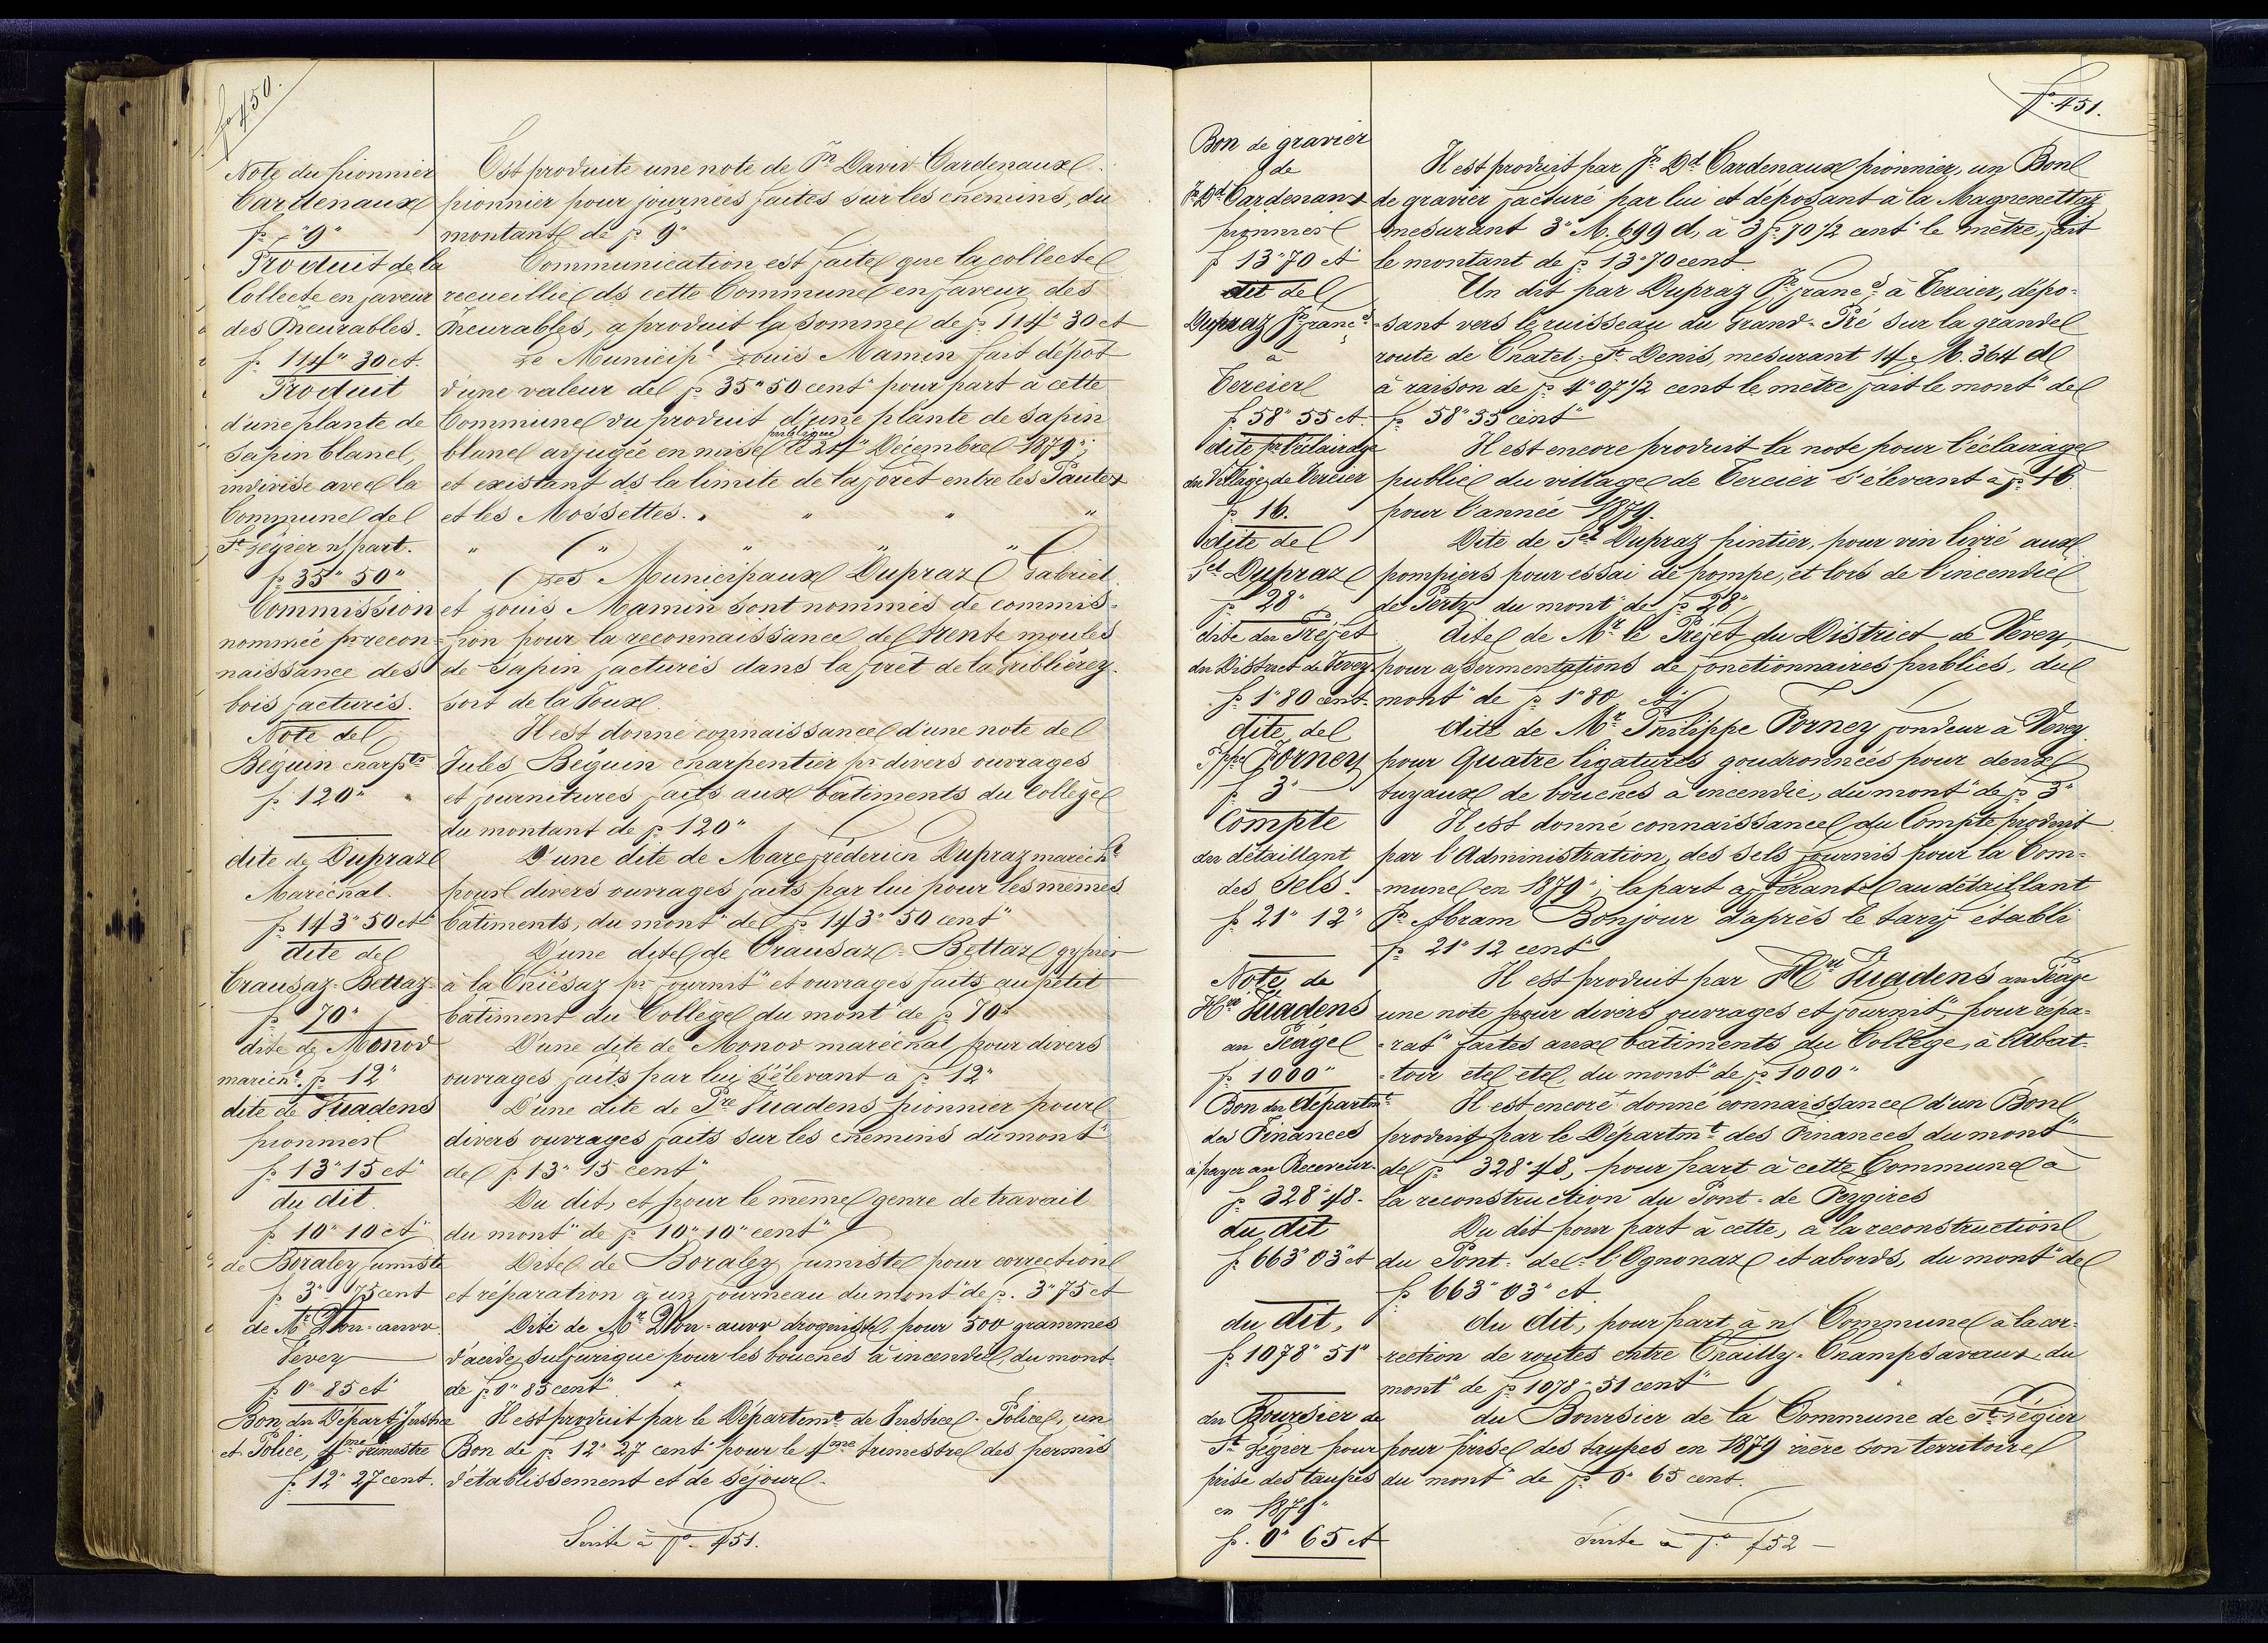 fo 450.
Note du pionnier
Cardenaux
fr. "9"
Produit de la
Collecte en faveur
des Incurables.
fr. 114" 30 ct.
Produit
d'une plante de
sapin blanc,
indivise avec la
Commune de
St Légier n/ part.
fr. 35" 50"
Commission
nommée pr recon-
naissance des
bois facturés.
Note de
Béguin charptr
fr. 120"
dite de Dupraz
Maréchal.
fr. 143" 50 ct
dite de
Crausaz-Bettaz
fr. 70"
dite de Monod
maréchl. fr. 12"
dite de Vuadens
pionnier
fr. 13" 15 ct
du dit.
fr. 10" 10 ct
de Boraley fumiste
fr. 3" 75 cent
de Mr Don-aurr
Vevey
fr. 0" 85 ct
Bon du Départ. Justice
et Police, 4me trimestre
fr. 12" 27 cent.
Est produite une note de Jn David Cardenaux
pionnier pour journées faites sur les chemins, du
montant de fr. 9"
Communication est faite que la collecte
recueillie ds cette Commune en faveur des
Incurables, a produit la somme de fr. 114" 30 ct
Le Municipl Louis Mamin fait dépôt
d'une valeur de fr. 35" 50 cent" pour part à cette
Commune du produit d'une plante de sapin
blanc adjugée en mise publique le 24" Décembre 1879";
et existant ds la limite de la forêt entre les Pautex
et les Mossettes. " " " "
" " " " "
Les Municipaux Dupraz Gabriel
et Louis Mamin sont nommés de commis-
sion pour la reconnaissance de trente moules
de sapin facturés dans la forêt de la Griblièrey.
sort de la Joux.
Il est donné connaissance d'une note de
Jules Béguin charpentier pr divers ouvrages
et fournitures faits aux bâtiments du Collège
du montant de fr. 120"
D'une dite de Marc fréderich Dupraz maréchl
pour divers ouvrages faits par lui pour les mêmes
bâtiments, du mont" de fr. 143" 50 cent"
D'une dite de Crausaz-Bettaz gypsier
à la Chiésaz pr fournit" et ouvrages faits au petit
bâtiment du Collège du mont" de fr. 70"
D'une dite de Monod maréchal, pour divers
ouvrages faits par lui, s'élevant à fr. 12"
D'une dite de Pre Vuadens pionnier pour
divers ouvrages faits sur les chemins du mont"
de fr. 13" 15 cent"
Du dit, et pour le même genre de travail
du mont" de fr. 10" 10" cent"
Dite de Boraley fumiste pour correction
et réparation à un fourneau du mont" de fr. 3" 75 ct
Dite de Mr Don-aurr drogniste, pour 500 grammes
d'acide sulfurique pour les bouches à incendie, du mont
de fr. 0" 85 cent"
Il est produit par le Départemt de Justice-Police, un
Bon de fr. 12" 27 cent" pour le 4me trimestre des permis
d'établissement et de séjour.
Suite à fo 451.
fo 451.
Bon de gravier
de
Jn Dd Cardenaux
pionnier
fr 13" 70 ct
dit de
Dupraz Jn françs
à
Tercier
fr 58" 55 ct.
dite pr l'éclairage
du Village de Tercier
fr 16.
dite de
Sel Dupraz
fr. 28"
dite du Préfet
du District de Vevey
fr. 1" 80 cent.
dite de
Phppe Forney
fr. 3"
Compte
du détaillant
des Sels.
fr. 21" 12"
Note de
Hri Vuadens
au Péage
fr. 1000"
Bon du départmt
des Finances
à payer au Receveur.
fr. 328" 48.
du dit
fr. 663" 03" ct
du dit,
fr. 1078" 51"
du Boursier de
St Légier pour
prise des taupes
en 1879"
fr. 0" 65 ct
Il est produit par Jn Dd Cardenaux pionnier, un Bon
de gravier facturé par lui et déposant à la Magnenettaz
mesurant 3" M. 699 d, à 3 fr. 70 1/2 cent" le mètre, fait
le montant de fr. 13" 70 cent.
Un dit par Dupraz Jn françs à Tercier, dépo-
-sant vers le ruisseau du Grand-Pré sur la grande
route de Chatel-St Denis, mesurant 14. M. 364 d
à raison de fr. 4" 07 1/2 cent le mètre fait le mont" de
fr. 58" 55 cent"
Il est encore produit la note pour l'éclairage
public du village de Tercier s'élevant à fr. 16
pour l'année 1879.
Dite de Sel Dupraz pintier, pour vin livré aux
pompiers pour essai de pompe, et lors de l'incendie
de Perty du mont" de fr. 28"
dite de Mr le Préfet du District de Vevey
pour assermentations de fonctionnaires publics, du
mont" de fr. 1" 80 ct
dite de Mr Philippe Forney fondeur à Vevey
pour Quatre ligatures goudronnées pour deux
tuyaux de bouches à incendie, du mont" de fr. 3"
Il est donné connaissance du Compte produit
par l'Administration, des sels fournis pour la Com-
-mune en 1879"; la part afférante au détaillant
Jn Abram Bonjour d'après le tarif établi
fr. 21" 12 cent"
Il est produit par Hri Vuadens au Péage
une note pour divers ouvrages et fournit", pour répa-
-rat" faites aux bâtiments du Collège, à l'Abat-
-toir etc etc, du mont" de fr. 1000"
Il est encore donné connaissance d'un Bon
produit par le Départmt des Finances du mont"
de fr. 328" 48, pour part à cette Commune à
la reconstruction du Pont-de Pezgires
Du dit pour part à cette, à la reconstruction
du Pont-de-l'Ognonaz et abords, du mont" de
fr. 663" 03" ct
du dit, pour part à n/ Commune à la cor-
-rection de routes entre Chailly-Champsavaux du
mont" de fr. 1078" 51 cent"
du Boursier de la Commune de St Légier
pour prise des taupes en 1879 rière son territoire
du mont" de fr. 0" 65 cent.
Suite à fo 452